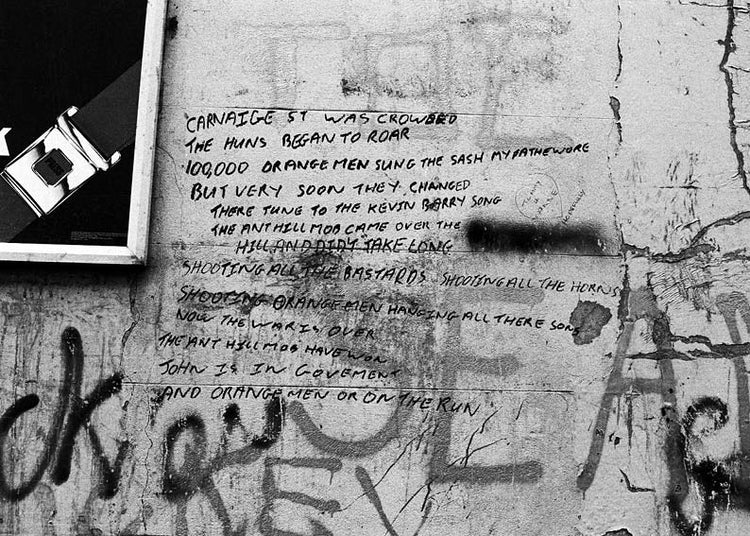 JOE
CARNAIGE ST WAS CROWDED
THE HUNS BEGAN TO ROAR
100,000 ORANGEMEN SUNG THE SASH MY FATHE WORE
BUT VERY SOON THEY CHANGED
THERE TUNE TO THE KEVIN BARRY SONG
THE ANT HILL MOB CAME OVER THE
HILL AND DIDT TAKE LONG
SHOOTING ALL THE BASTARDS SHOOTING ALL THE HORNS
SHOOTING ORANGEMEN HANGING ALL THERE SONS
NOW THE WAR IS OVER
THE ANT HILL MOB HAVE WON
JOHN IS IN GOVEMENT
AND ORANGEMEN OR ON THE RUN